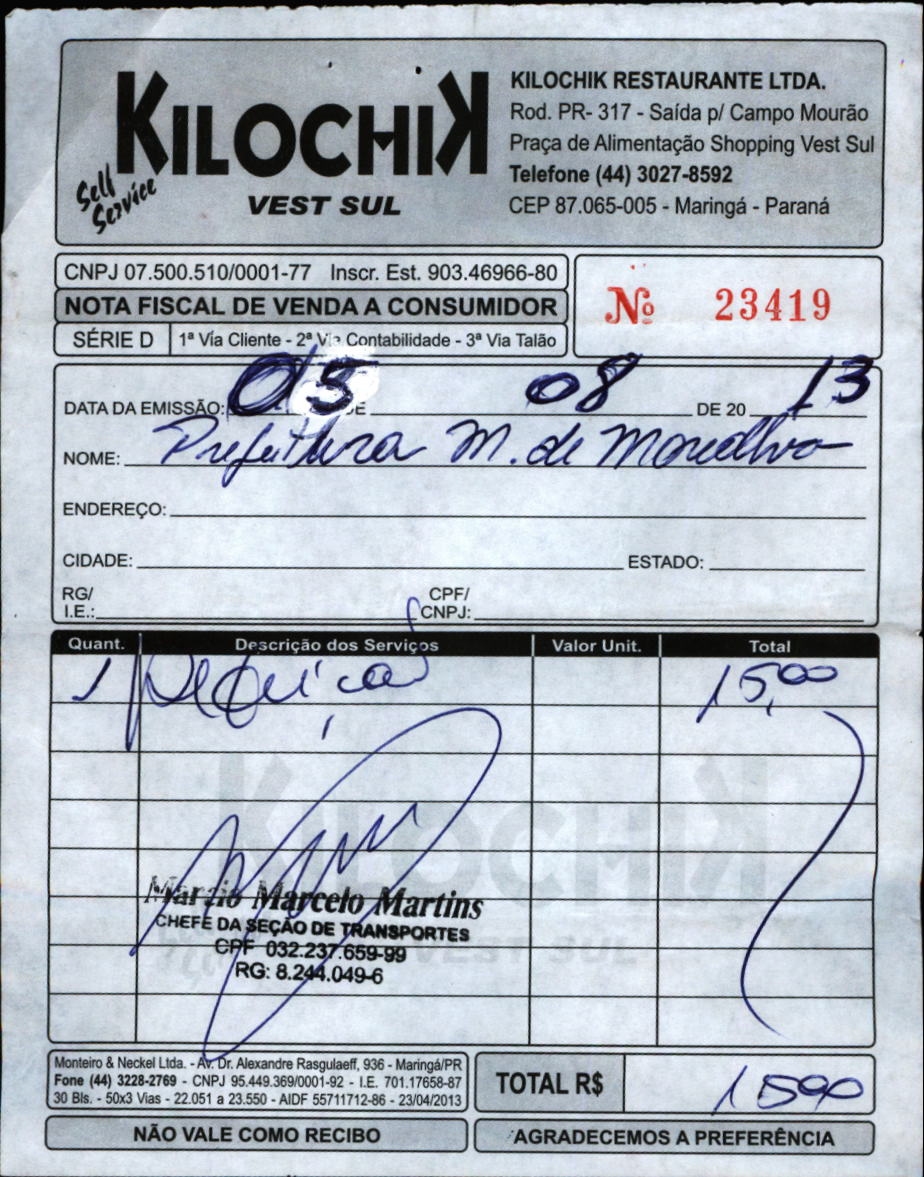 KILOCHIK
Self Service
VEST SUL
KILOCHIK RESTAURANTE LTDA.
Rod. PR- 317 - Saída p/ Campo Mourão
Praça de Alimentação Shopping Vest Sul
Telefone (44) 3027-8592
CEP 87.065-005 - Maringá - Paraná
CNPJ 07.500.510/0001-77 Inscr. Est. 903.46966-80
NOTA FISCAL DE VENDA A CONSUMIDOR
SÉRIE D 1ª Via Cliente - 2ª Via Contabilidade - 3ª Via Talão
Nº 23419
DATA DA EMISSÃO: 05 DE 08 DE 20 13
NOME: Prefeitura M. de
ENDEREÇO:
CIDADE: ESTADO:
RG/ I.E.: CPF/ CNPJ:
Quant. Descrição dos Serviços Valor Unit. Total
1 15,00
KILOCHIK
VEST SUL
Marcio Marcelo Martins
CHEFE DA SEÇÃO DE TRANSPORTES
CPF 032.237.659-99
RG: 8.244.049-6
Monteiro & Neckel Ltda. - Av. Dr. Alexandre Rasgulaeff, 936 - Maringá/PR
Fone (44) 3228-2769 - CNPJ 95.449.369/0001-92 - I.E. 701.17658-87
30 Bls. - 50x3 Vias - 22.051 a 23.550 - AIDF 55711712-86 - 23/04/2013
TOTAL R$ 1500
NÃO VALE COMO RECIBO
AGRADECEMOS A PREFERÊNCIA